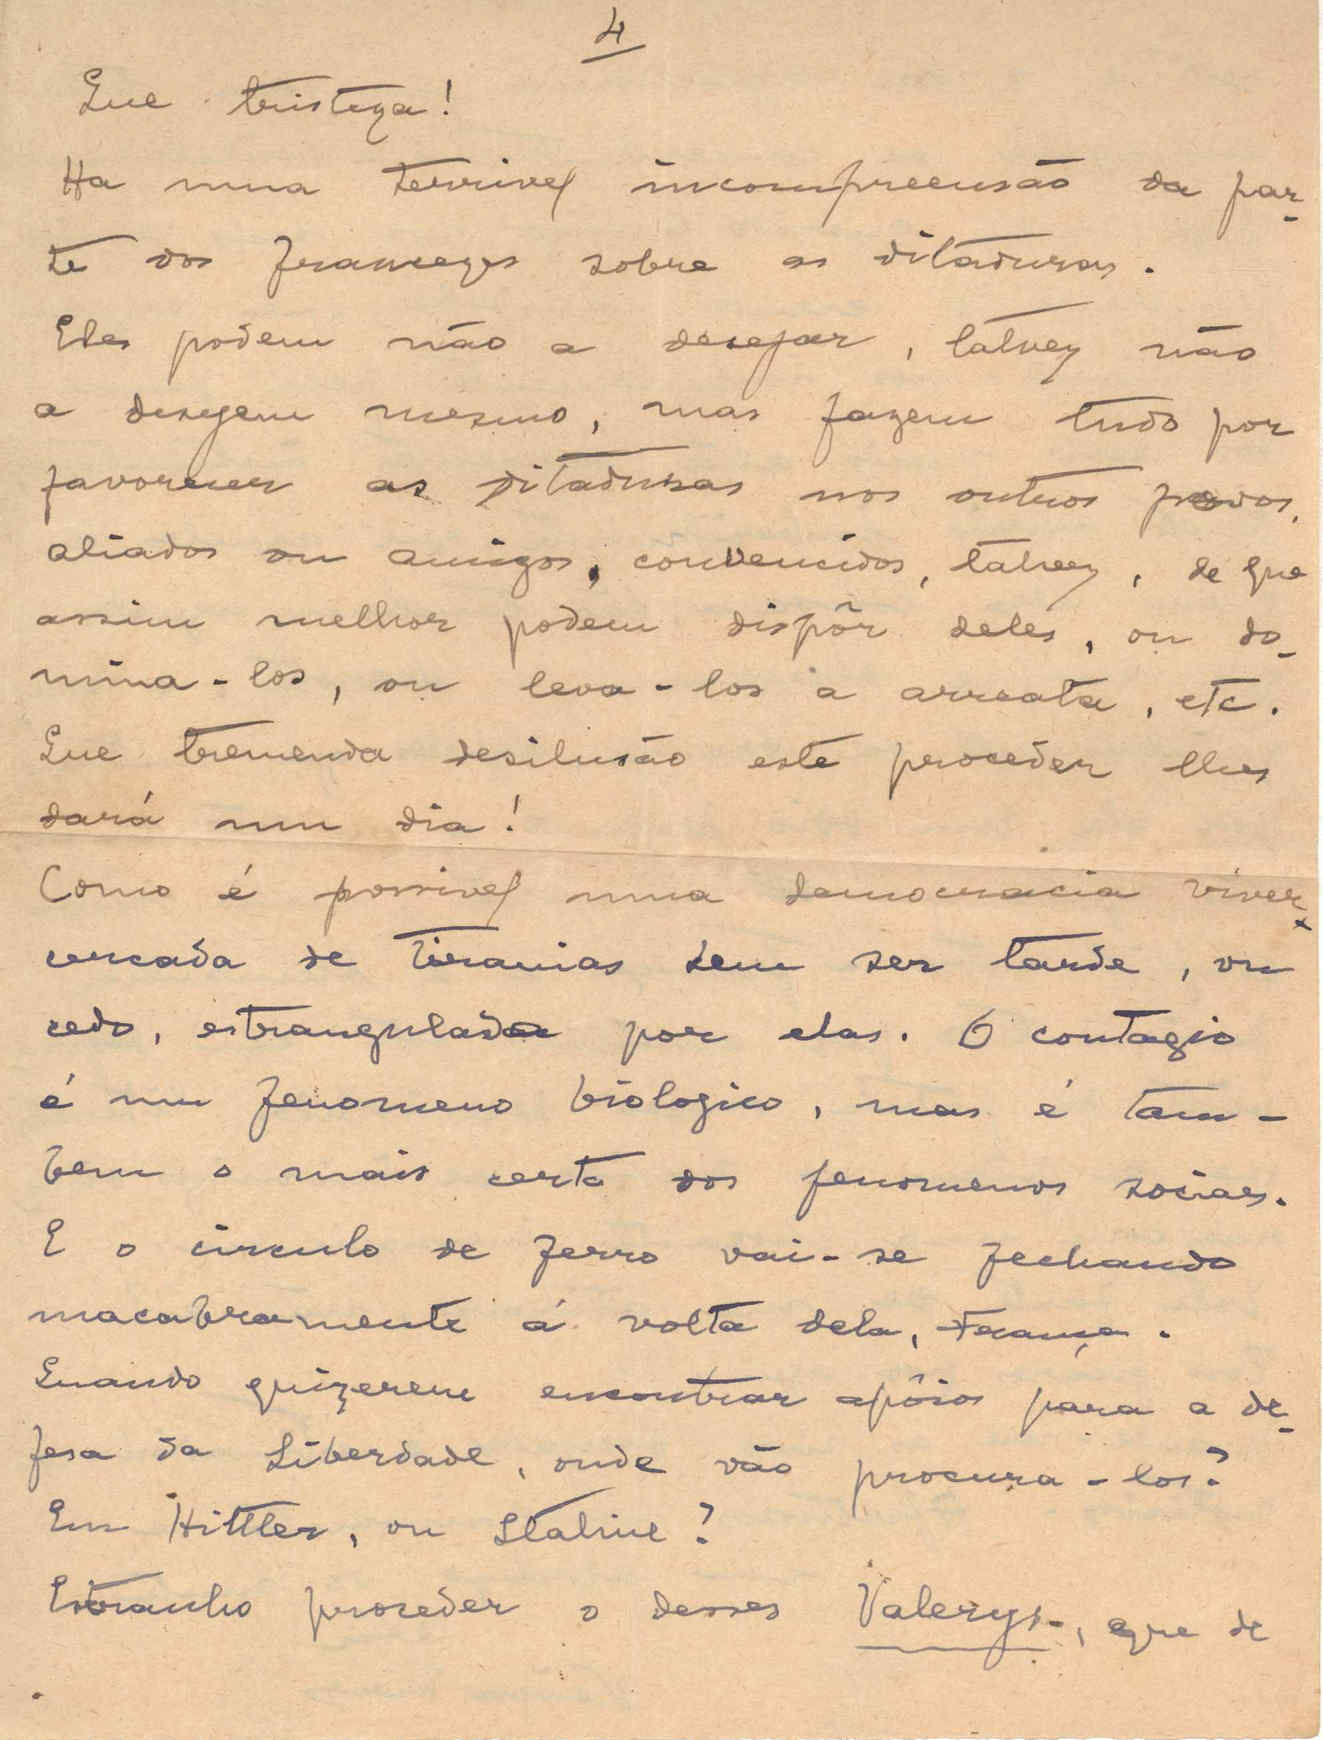 4
Que tristeza!
Ha uma terrivel incompreensão da par-
te dos francezes sobre as ditaduras.
Eles podem não a desejar, talvez não
a desejem mesmo, mas fazem tudo por
favorecer as ditaduras nos outros povos,
aliados ou amigos, convencidos, talvez, de que
assim melhor podem dispôr deles, ou do-
mina-los, ou leva-los à arreata, etc.
Que tremenda desilusão este proceder lhes
dará um dia!
Como é possivel uma democracia viver
cercada de tiranias sem ser tarde, ou
cedo, estrangulada por elas. O contagio
é um fenomeno biologico, mas é tam-
bem o mais certo dos fenomenos sociaes.
E o circulo de ferro vai-se fechando
macabramente á volta dela, França.
Quando quizerem encontrar apôios para a de-
fesa da Liberdade, onde vão procura-los?
Em Hittler, ou Staline?
Estranho proceder o desses Valerys, que de